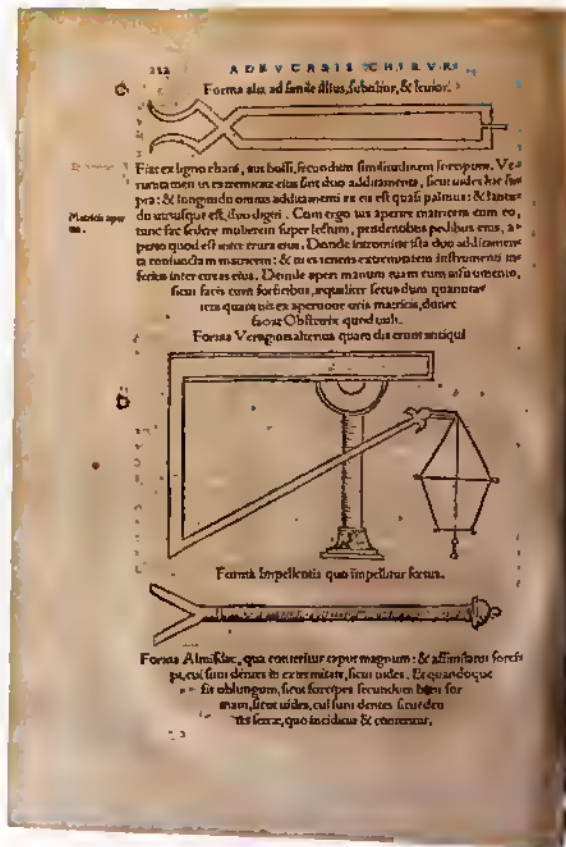 Forma alia ad simile illius, subtilior, & leuior.
Fiat ex ligno ebani, aut buxi, secundum similitudinem forcipum. Ve-
runtamen in extremitate eius sint duo additamenta, sicut uides hæc su-
pra: & longitudo omnis additamenti ex eis est quasi palmus: & latitu-
do utriusque est, duo digiti. Cum ergo uis aperire matricem cum eo,
Matricis aper
tunc fac sedere mulierem super lectum, pendentibus pedibus eius, a-
perto quod est inter crura eius. Deinde intromitte ista duo additamen
ta coniuncta in matricem: & tu es tenens extremitatem instrumenti in-
ferius inter coxas eius. Deinde aperi manum tuam cum instrumento,
sicut facis cum forficibus, æqualiter secundum quantita-
tem quam uis ex apertione oris matricis, donec
faciat Obstetrix quod uult.
Forma Vertiginis alterius quam dixerunt antiqui
Forma Impellentis quo impellitur fœtus.
Forma Almisdac, qua conteritur caput magnum: & assimilatur forcipi
pi, cui sunt dentes in extremitate, sicut uides. Et quandoque
fit oblongum, sicut forcipes secundum hanc for
mam, sicut uides, cui sunt dentes sicut den
tes serræ, quo inciditur & conteritur.